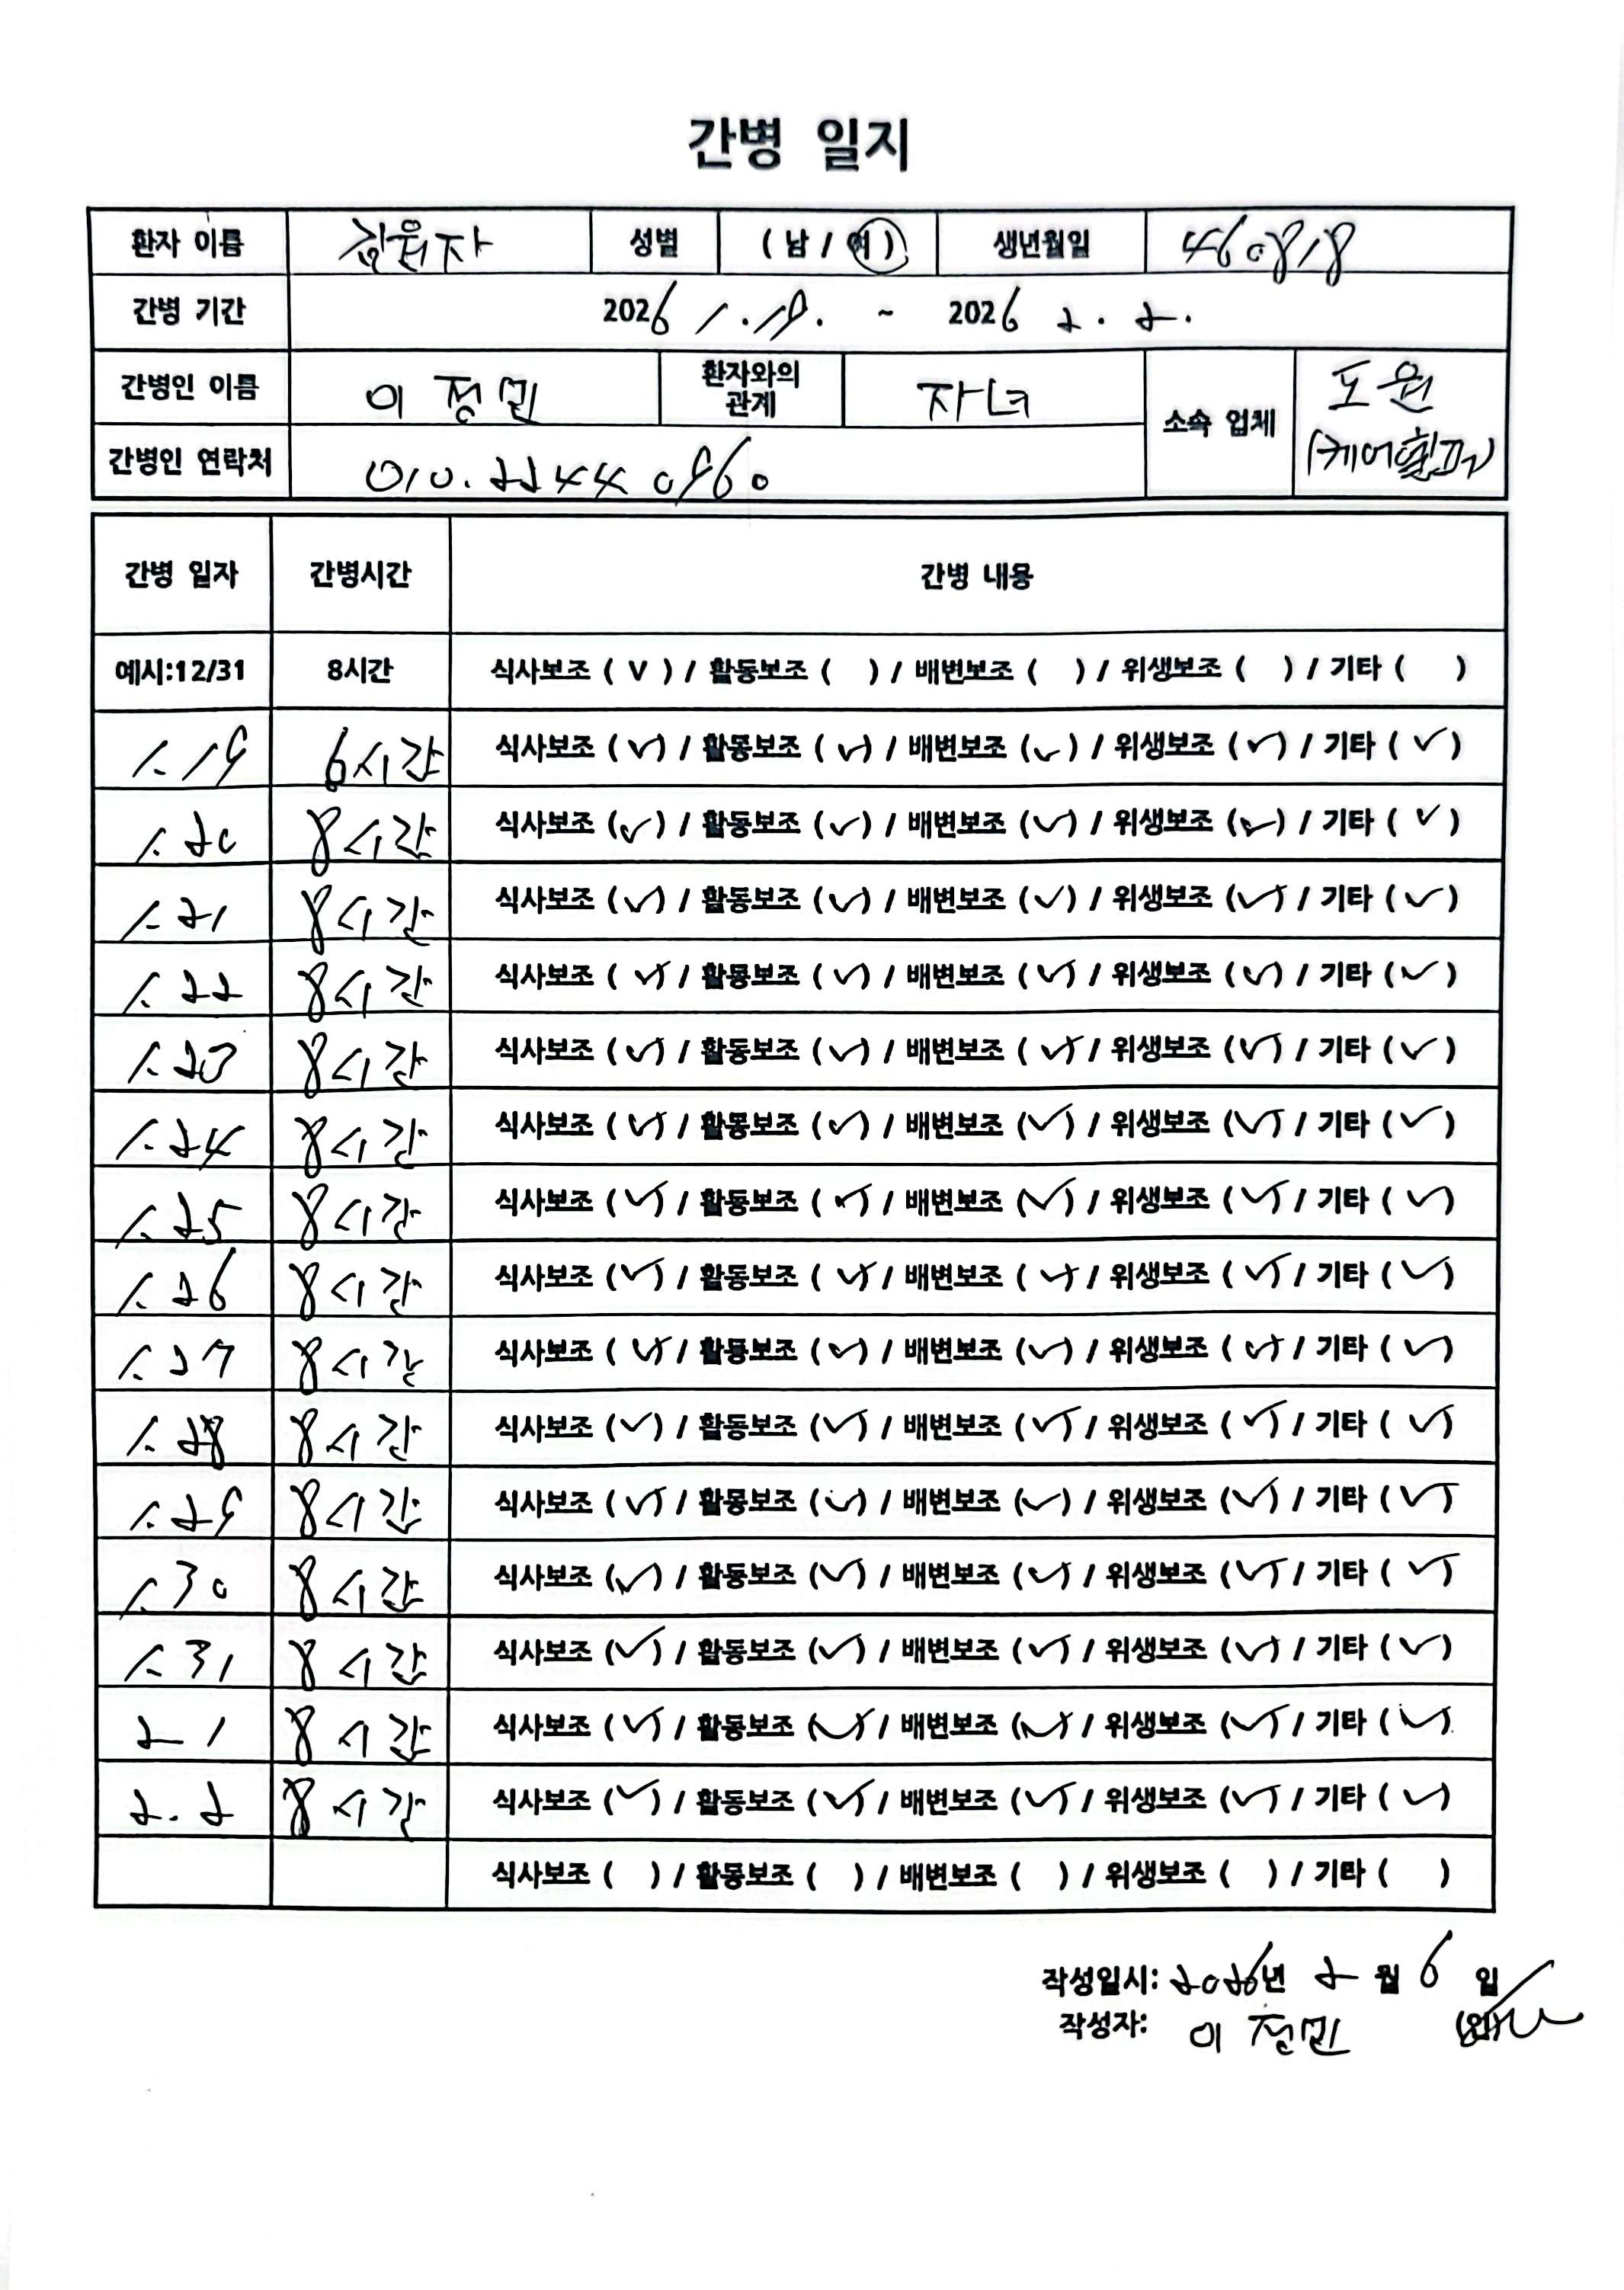 간병 일지
환자 이름 김원자 성별 ( 남 / 여 ) 생년월일 460818
간병 기간 2026 1.19. ~ 2026 2.2.
간병인 이름 이정민 환자와의 관계 자녀 소속 업체 도원
간병인 연락처 010.2244 0960 (케어헬퍼)
간병 일자 간병시간 간병 내용
예시:12/31 8시간 식사보조 ( V ) / 활동보조 ( ) / 배변보조 ( ) / 위생보조 ( ) / 기타 ( )
1.19 6시간 식사보조 (✓) / 활동보조 (✓) / 배변보조 (✓) / 위생보조 (✓) / 기타 (✓)
1.20 8시간 식사보조 (✓) / 활동보조 (✓) / 배변보조 (✓) / 위생보조 (✓) / 기타 (✓)
1.21 8시간 식사보조 (✓) / 활동보조 (✓) / 배변보조 (✓) / 위생보조 (✓) / 기타 (✓)
1.22 8시간 식사보조 (✓) / 활동보조 (✓) / 배변보조 (✓) / 위생보조 (✓) / 기타 (✓)
1.23 8시간 식사보조 (✓) / 활동보조 (✓) / 배변보조 (✓) / 위생보조 (✓) / 기타 (✓)
1.24 8시간 식사보조 (✓) / 활동보조 (✓) / 배변보조 (✓) / 위생보조 (✓) / 기타 (✓)
1.25 8시간 식사보조 (✓) / 활동보조 (✓) / 배변보조 (✓) / 위생보조 (✓) / 기타 (✓)
1.26 8시간 식사보조 (✓) / 활동보조 (✓) / 배변보조 (✓) / 위생보조 (✓) / 기타 (✓)
1.27 8시간 식사보조 (✓) / 활동보조 (✓) / 배변보조 (✓) / 위생보조 (✓) / 기타 (✓)
1.28 8시간 식사보조 (✓) / 활동보조 (✓) / 배변보조 (✓) / 위생보조 (✓) / 기타 (✓)
1.29 8시간 식사보조 (✓) / 활동보조 (✓) / 배변보조 (✓) / 위생보조 (✓) / 기타 (✓)
1.30 8시간 식사보조 (✓) / 활동보조 (✓) / 배변보조 (✓) / 위생보조 (✓) / 기타 (✓)
1.31 8시간 식사보조 (✓) / 활동보조 (✓) / 배변보조 (✓) / 위생보조 (✓) / 기타 (✓)
2 1 8시간 식사보조 (✓) / 활동보조 (✓) / 배변보조 (✓) / 위생보조 (✓) / 기타 (✓)
2.2 8시간 식사보조 (✓) / 활동보조 (✓) / 배변보조 (✓) / 위생보조 (✓) / 기타 (✓)
식사보조 ( ) / 활동보조 ( ) / 배변보조 ( ) / 위생보조 ( ) / 기타 ( )
작성일시: 2026년 2월 6일
작성자: 이정민 (인)